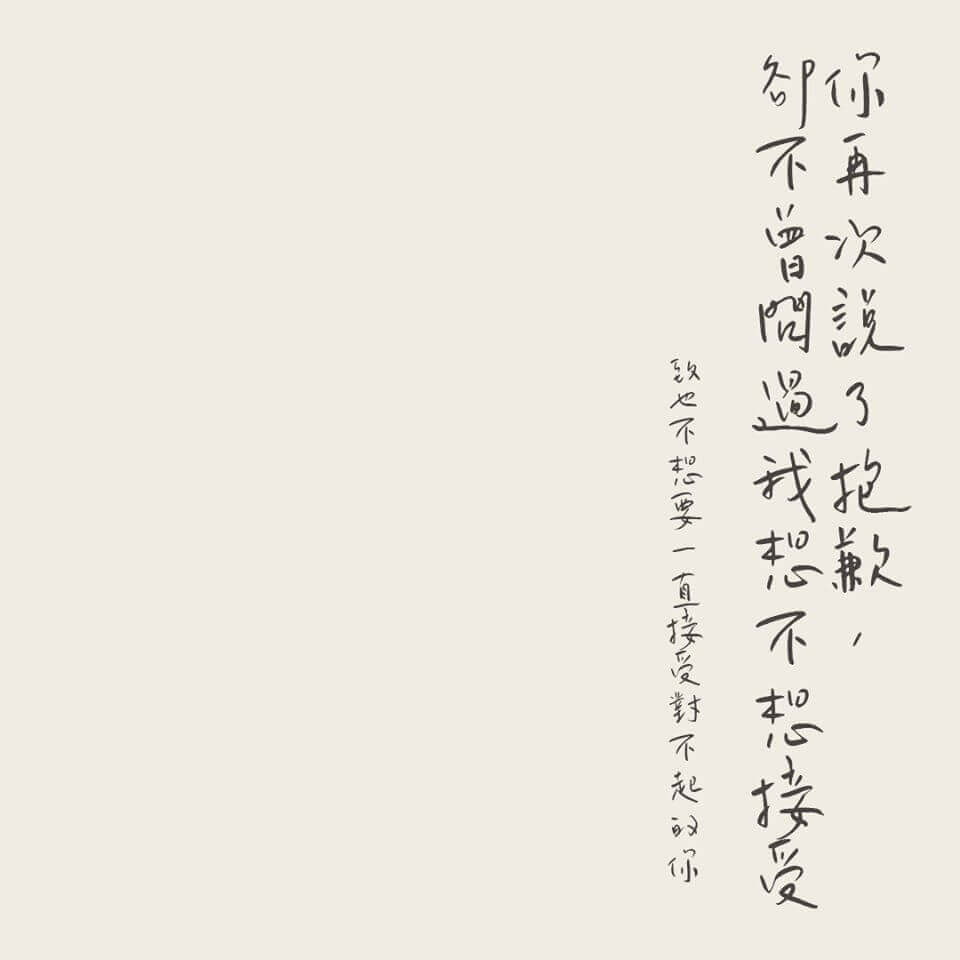 你再次說了抱歉，
卻不曾問過我想不想接受
致也不想要一直接受對不起的你